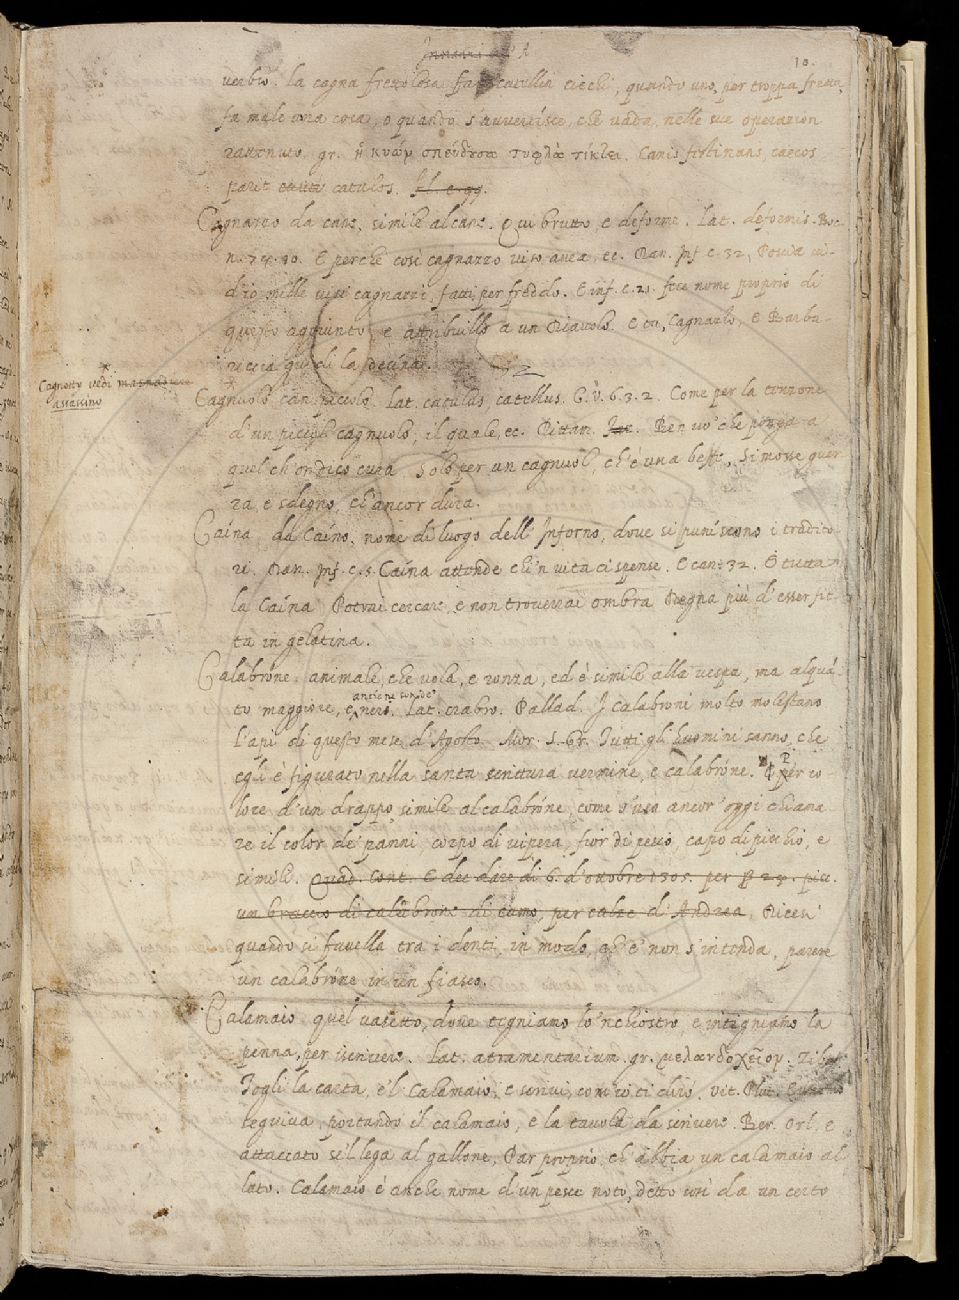 10.
verbio. la cagna frettolosa fa i catellin ciechi, quando uno, per troppa fretta,
fa male una cosa, o quando s'avvertisce, che vada, nelle sue operazion
rattenuto. gr. ἡ κυὼν σπεύδουσα τυφλὰ τίκτει. Canis festinans, caecos
parit catulos.
Cagnazzo da cane, simile al cane. Qui brutto, e deforme. Lat. deformis. Boc.
n. 79. 40. E perchè così cagnazzo viso avea, ec. Dan. Inf. c. 32. Poscia vi-
d'io mille visi cagnazzi, fatti per freddo. E inf. c. 21. fece nome proprio di
questo aggiunto, e attribuillo a un Diavolo. E tu, Cagnazzo, E Barba-
riccia guidi la decina.
Cagnotto vedi masnadiere
assassino
Cagnuolo can piccolo. Lat. catulus, catellus. G. V. 6. 3. 2. Come per la tenzone
d'un piccolo cagnuolo, il quale, ec. Dittam. Ben vo' che ponga a
quel ch'or dico cura. Solo per un cagnuol, ch'è una beffe, Si mosse guer-
ra, e sdegno, ch'ancor dura.
Caina, da Caino, nome di luogo dell'Inferno, dove si puniscono i tradito-
ri. Dan. Inf. c. 5. Caina attende chi'n vita ci spense. E can. 32. E tutta
la Caina Potrai cercare, e non troverrai ombra Degna più d'esser fit-
ta in gelatina.
Calabrone. animale, che vola, e ronza, ed è simile alla vespa, ma alquá-
to maggiore, e nero. Lat. crabro. Pallad. I calabroni molto molestano
l'api di questo mese d'Agosto. Mor. S. Gr. Tutti gli huomini sanno, che
egli è figurato nella santa scrittura vermine, e calabrone. E per co-
lore d'un drappo simile al calabrone, come s'usa ancor'oggi chiama
re il color de' panni, corpo di vipera, fior di pesco, capo di picchio, e
simili. Quad. Cont. E dee dare di 6. d'ottobre 1305. per
un braccio di calabrone di camo, per calze d'Andrea, Dicesi
quando si favella tra i denti, in modo, ch'e' non s'intenda, parere
un calabrone in un fiasco.
Calamaio quel vasetto, dove tegniamo lo'nchiostro e intigniamo la
penna, per iscrivere. Lat. atramentarium. gr. μελανδοχεῖον.
Togli la carta, e'l calamaio, e scrivi, com'io ti dirò, Vit. Plut.
seguiva, portando il calamaio, e la tavola da scrivere. Ber. Orl. e
attaccato se'l lega al gallone, Par proprio, ch'abbia un calamaio al
lato. Calamaio è anche nome d'un pesce noto, detto così da un certo